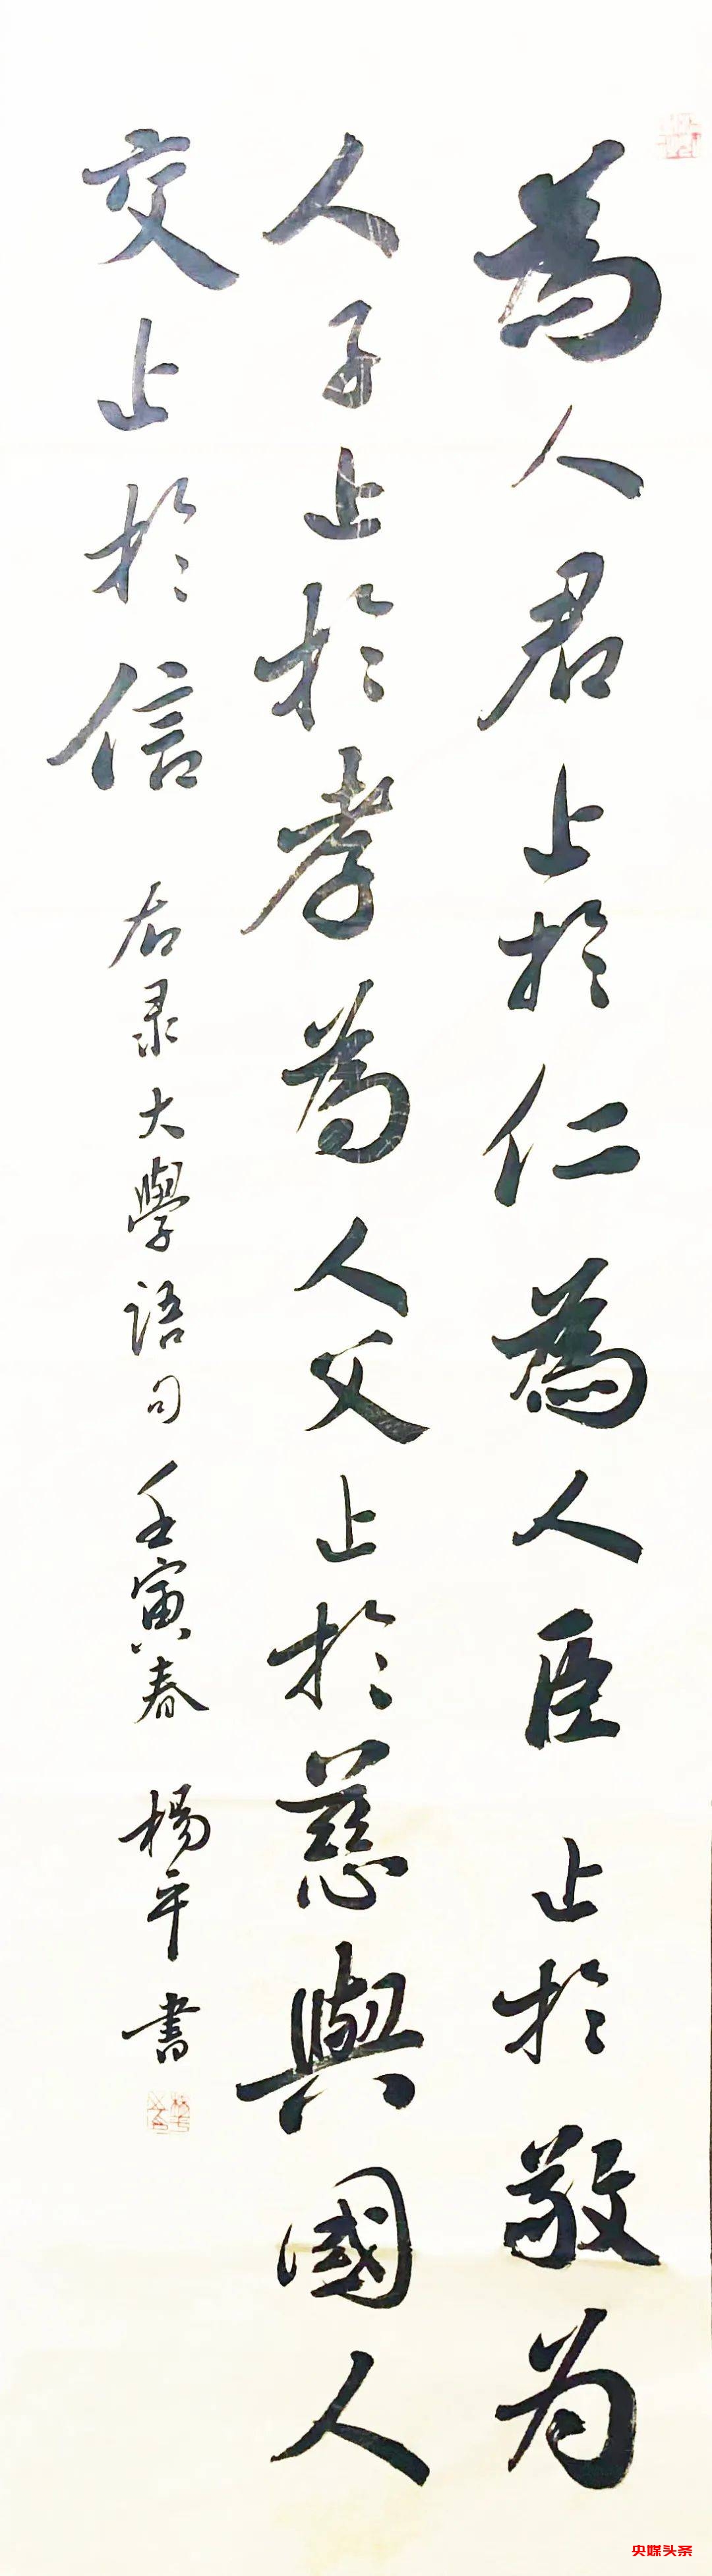 為人君止於仁為人臣止於敬为
人子止於孝為人父止於慈與國人
交止於信
右录大學語句壬寅春楊平書
央媒头条